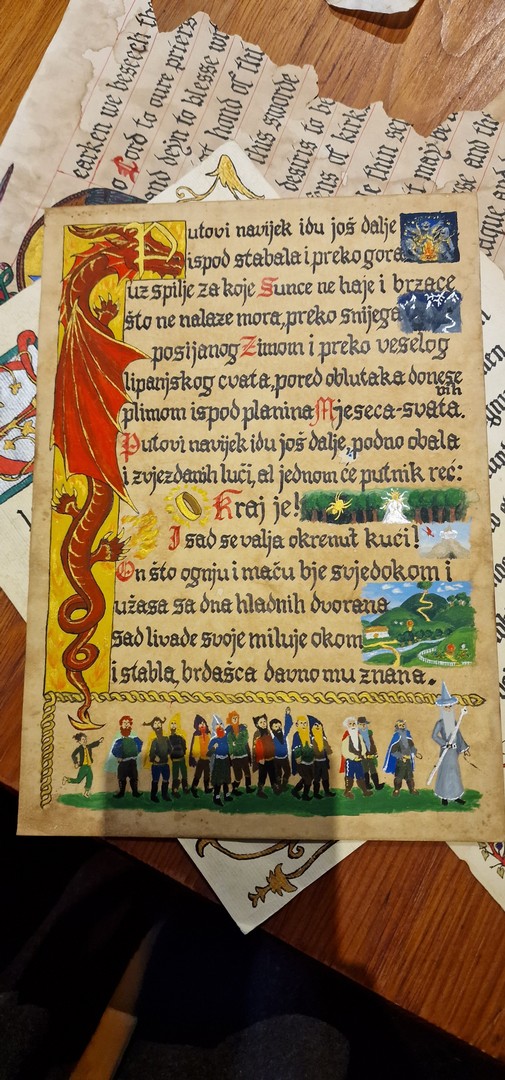 earken we beseech th
o Lord to oure priers
and deyn to blesse wi
hond of thi
this swerde
desiris to be
ens of kirk
e thin
may be
se and the
Putovi navijek idu još dalje
ispod stabala i preko gora
uz spilje za koje Sunce ne haje i brzace
što ne nalaze mora, preko snijega
posijanog Zimom i preko veselog
lipanjskog cvata, pored oblutaka donese
nih
plimom ispod planina Mjeseca-svata.
Putovi navijek idu još dalje, podno obala
i zvjezdanih luči, al jednom će putnik reć:
Kraj je!
I sad se valja okrenut kući!
On što ognju i maču bje svjedokom i
užasa sa dna hladnih dvorana
sad livade svoje miluje okom
i stabla, brdašca davno mu znana.